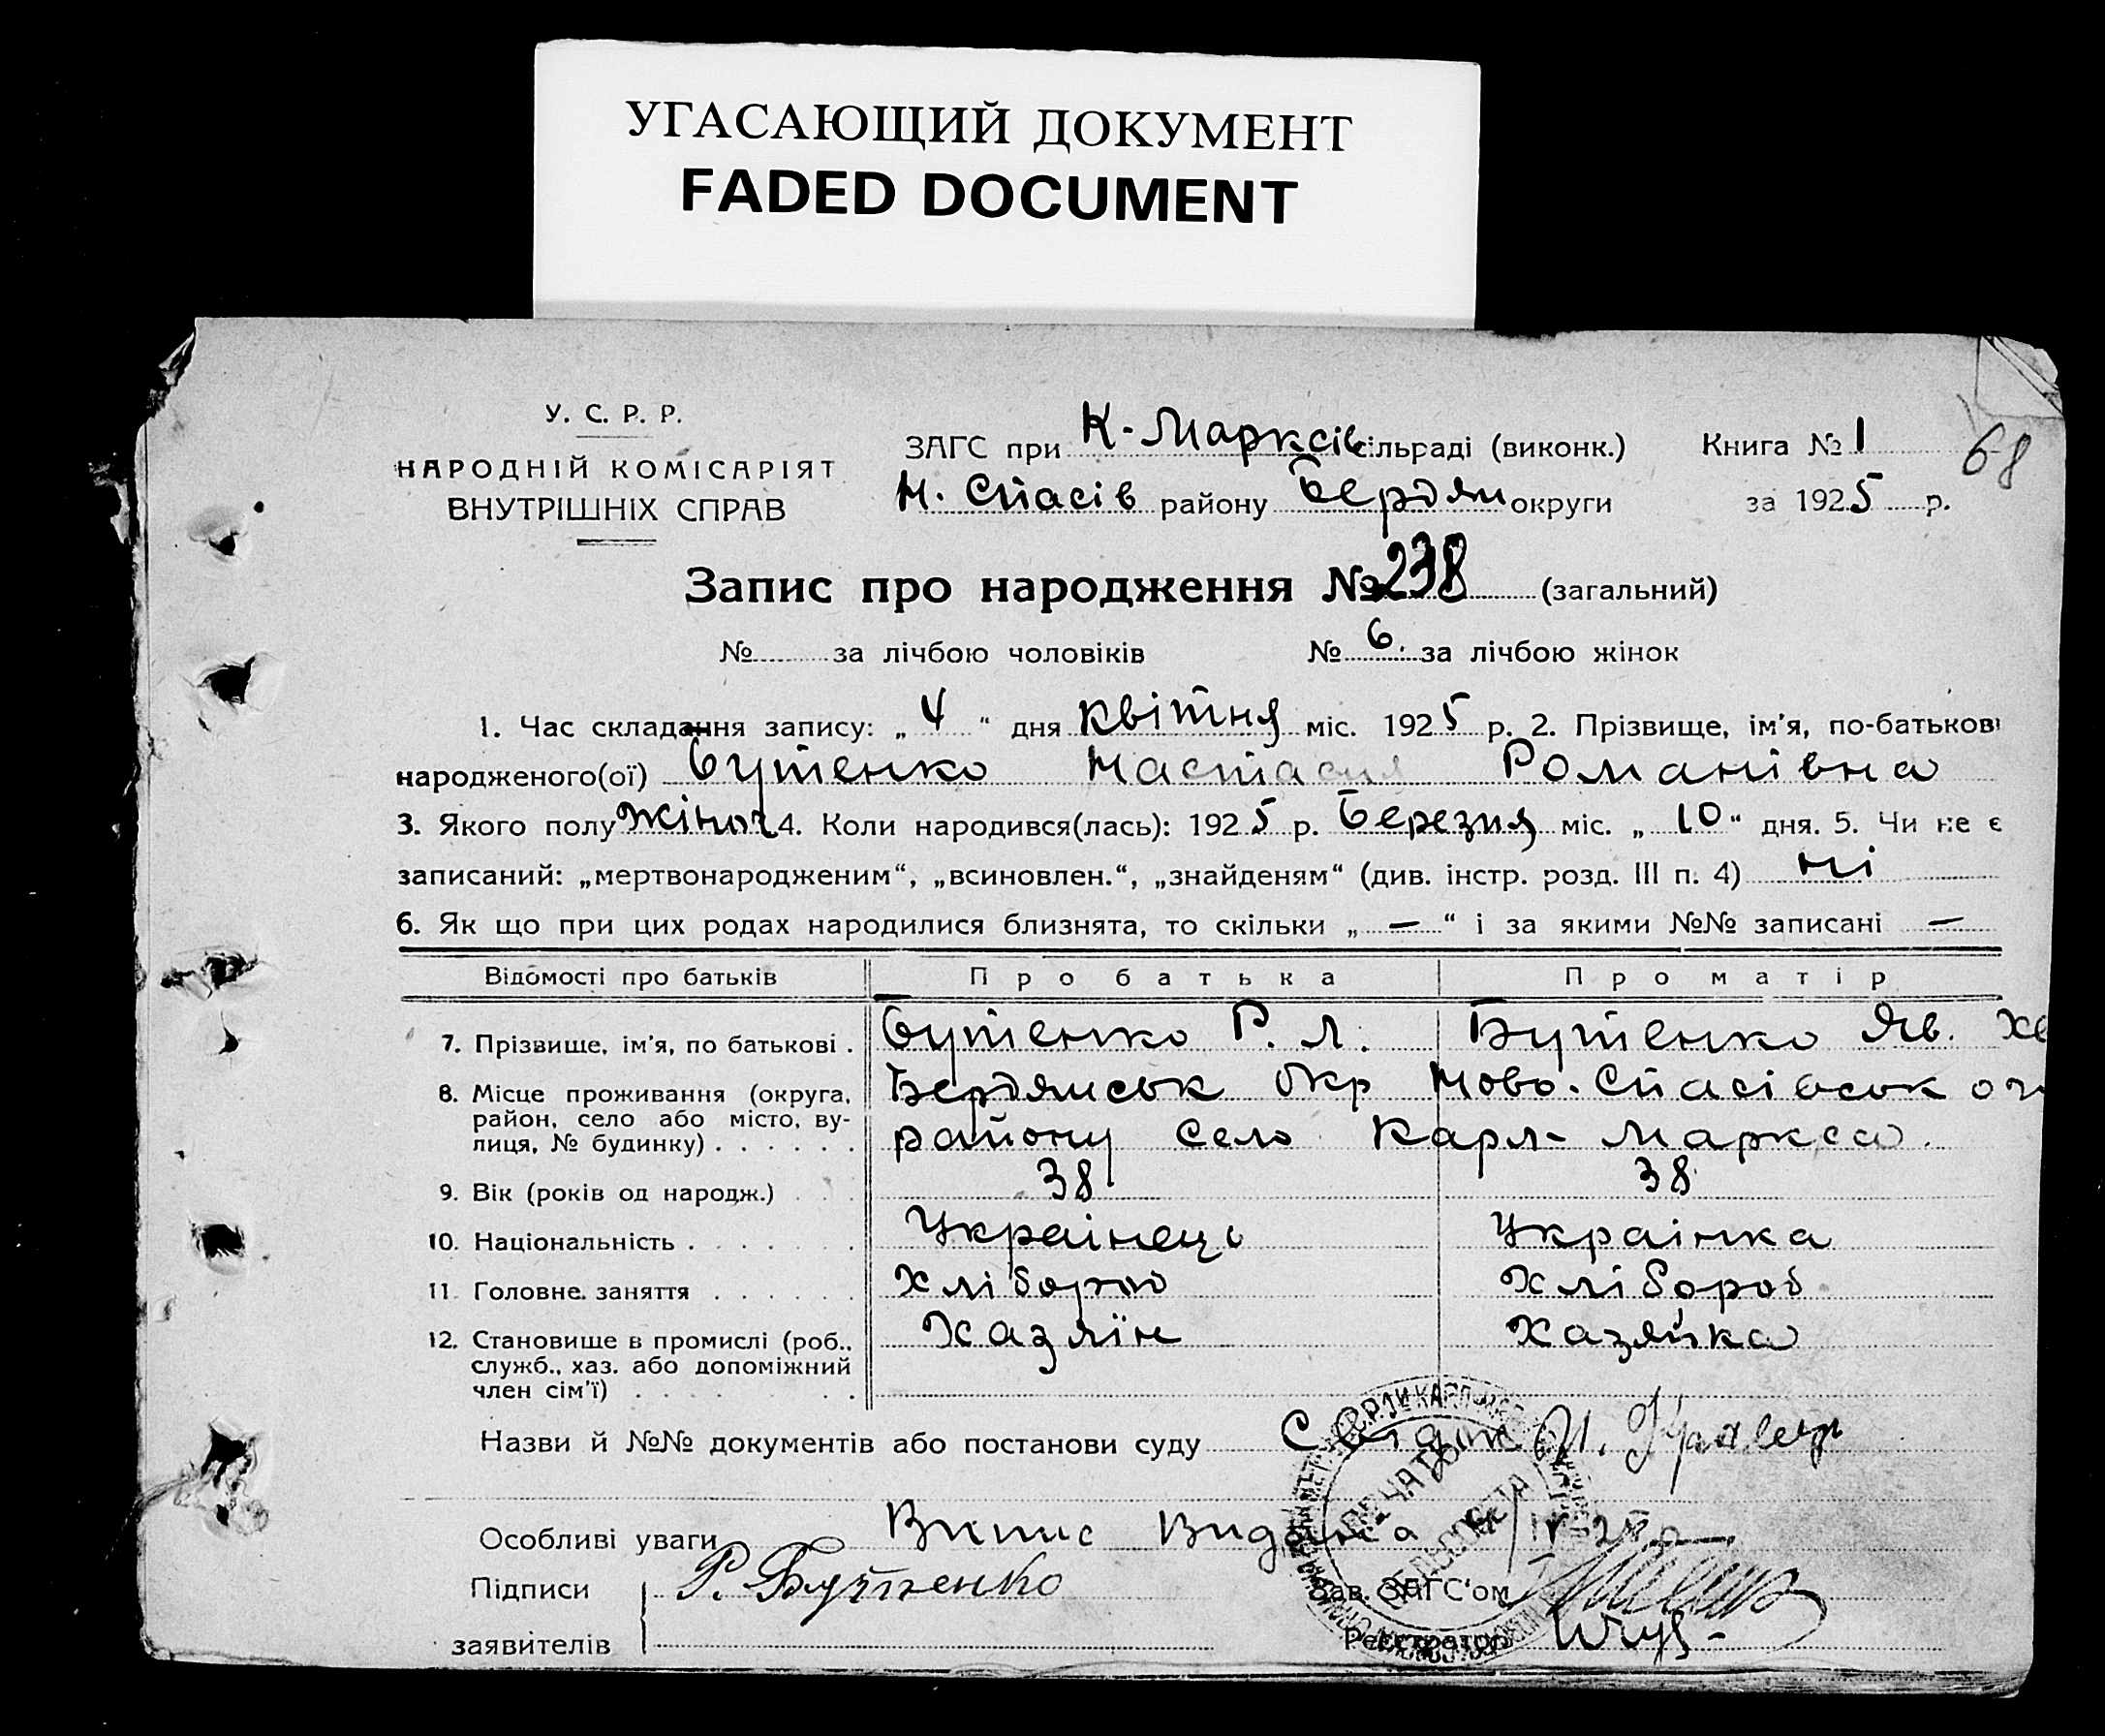 УГАСАЮЩИЙ ДОКУМЕНТ
FADED DOCUMENT
У. С. Р. Р.
НАРОДНІЙ КОМІСАРІЯТ
ВНУТРІШНІХ СПРАВ
ЗАГС при К-Марксів сільраді (виконк.)
Н. Спасів району Бердян округи
Книга № 1
за 1925 р.
68
Запис про народження № 238 (загальний)
№ за лічбою чоловіків № 6. за лічбою жінок
1. Час складання запису: „ 4 “ дня квітня міс. 1925 р. 2. Прізвище, ім'я, по-батькові
народженого(ої) Бутенко Настасия Романівна
3. Якого полу жіноч 4. Коли народився(лась): 1925 р. Березня міс. „ 10 “ дня. 5. Чи не є
записаний: „мертвонародженим“, „всиновлен.“, „знайденям“ (див. інстр. розд. III п. 4) ні
6. Як що при цих родах народилися близнята, то скільки „ — “ і за якими №№ записані —
Відомості про батьків Про батька Про матір
7. Прізвище, ім'я, по батькові . Бутенко Р. Л. Бутенко Яв. Хв
8. Місце проживання (округа, район, село або місто, вулиця, № будинку) . . . . . . Бердянськ окр Ново-Спасівськ ог
району село Карл-Маркса.
9. Вік (років од народж.) . . . 38 38
10. Національність . . . . . . Украінець Украінка
11. Головне заняття . . . . . . Хлібороб Хлібороб
12. Становище в промислі (роб., служб., хаз. або допоміжний член сім'ї) . . . . . . Хазяїн Хазяйка
Назви й №№ документів або постанови суду
Особливі уваги Випис Видана
Підписи
заявителів
Р. Бутенко
Зав. ЗАГС'ом
Реєстратор
ПЕЧАТЬ
СЕЛЬСОВЕТА